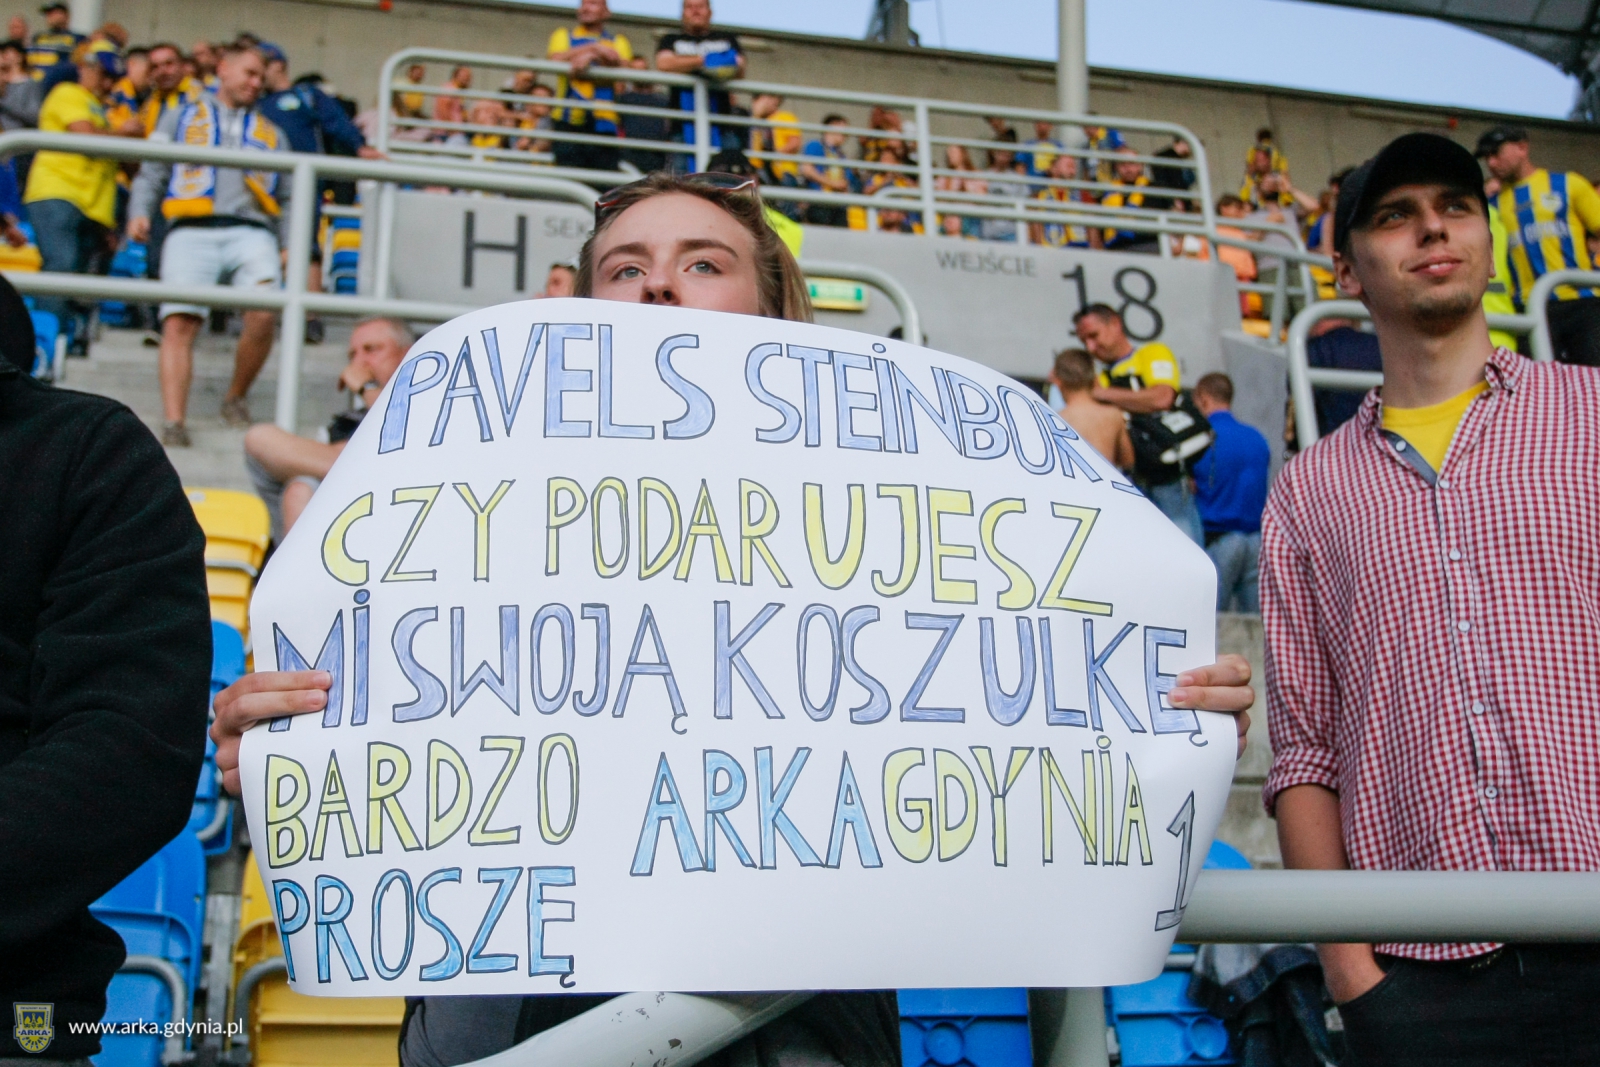 H SEK
WEJŚCIE 18
PAVELS STEINBOR
CZY PODARUJESZ
MI SWOJĄ KOSZULKĘ
BARDZO ARKA GDYNIA 1
PROSZĘ
ARKA
www.arka.gdynia.pl